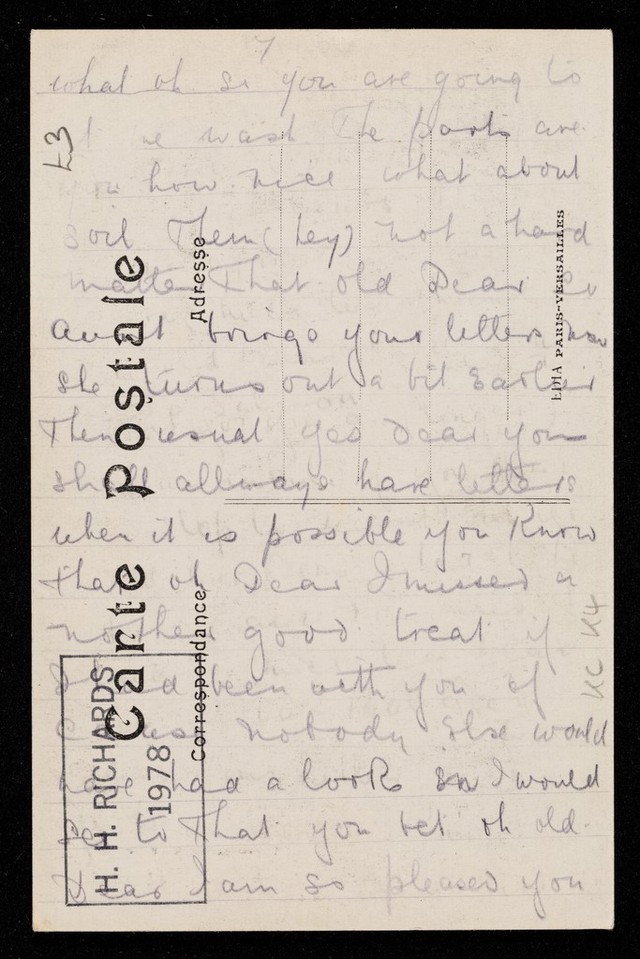 7
what oh so you are going to
we wash The parts are
how nice what about
soil Them (hey) not a hard
matter That old Dear
Aunt brings your letters now
She turns out a bit Earlier
Then usual yes Dear you
shall allways have letters
when it is possible you Know
that oh Dear I missed a
nother good treat if
I had been with you of
Course nobody Else would
have had a look in I would
See to That you bet oh old
Dear I am so pleased you
L3
Carte Postale
Adresse
Correspondance
H. H. RICHARDS
1978
PARIS-VERSAILLES
KC K4